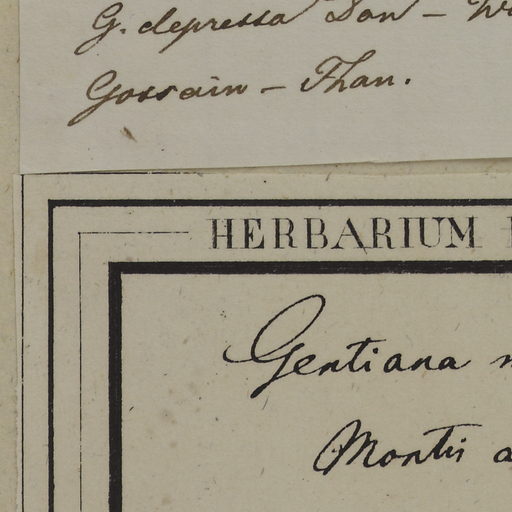 G. depressa Don -
Gossain - Than.
HERBARIUM
Gentiana
Montis